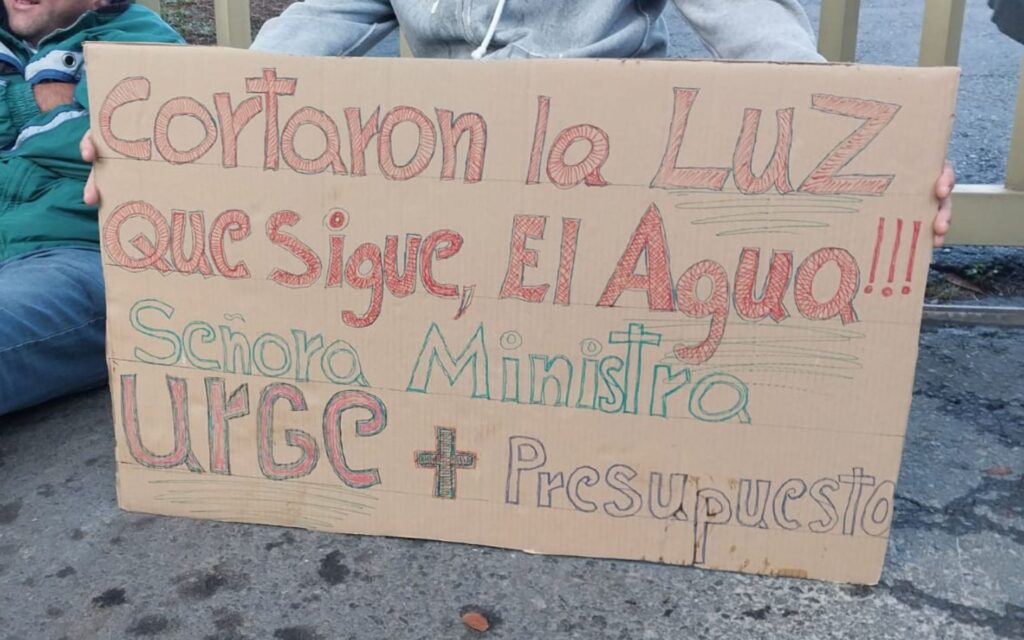 Cortaron la Luz
Que sigue, El Agua!!!
Señora Ministra
Urge + Presupuesto